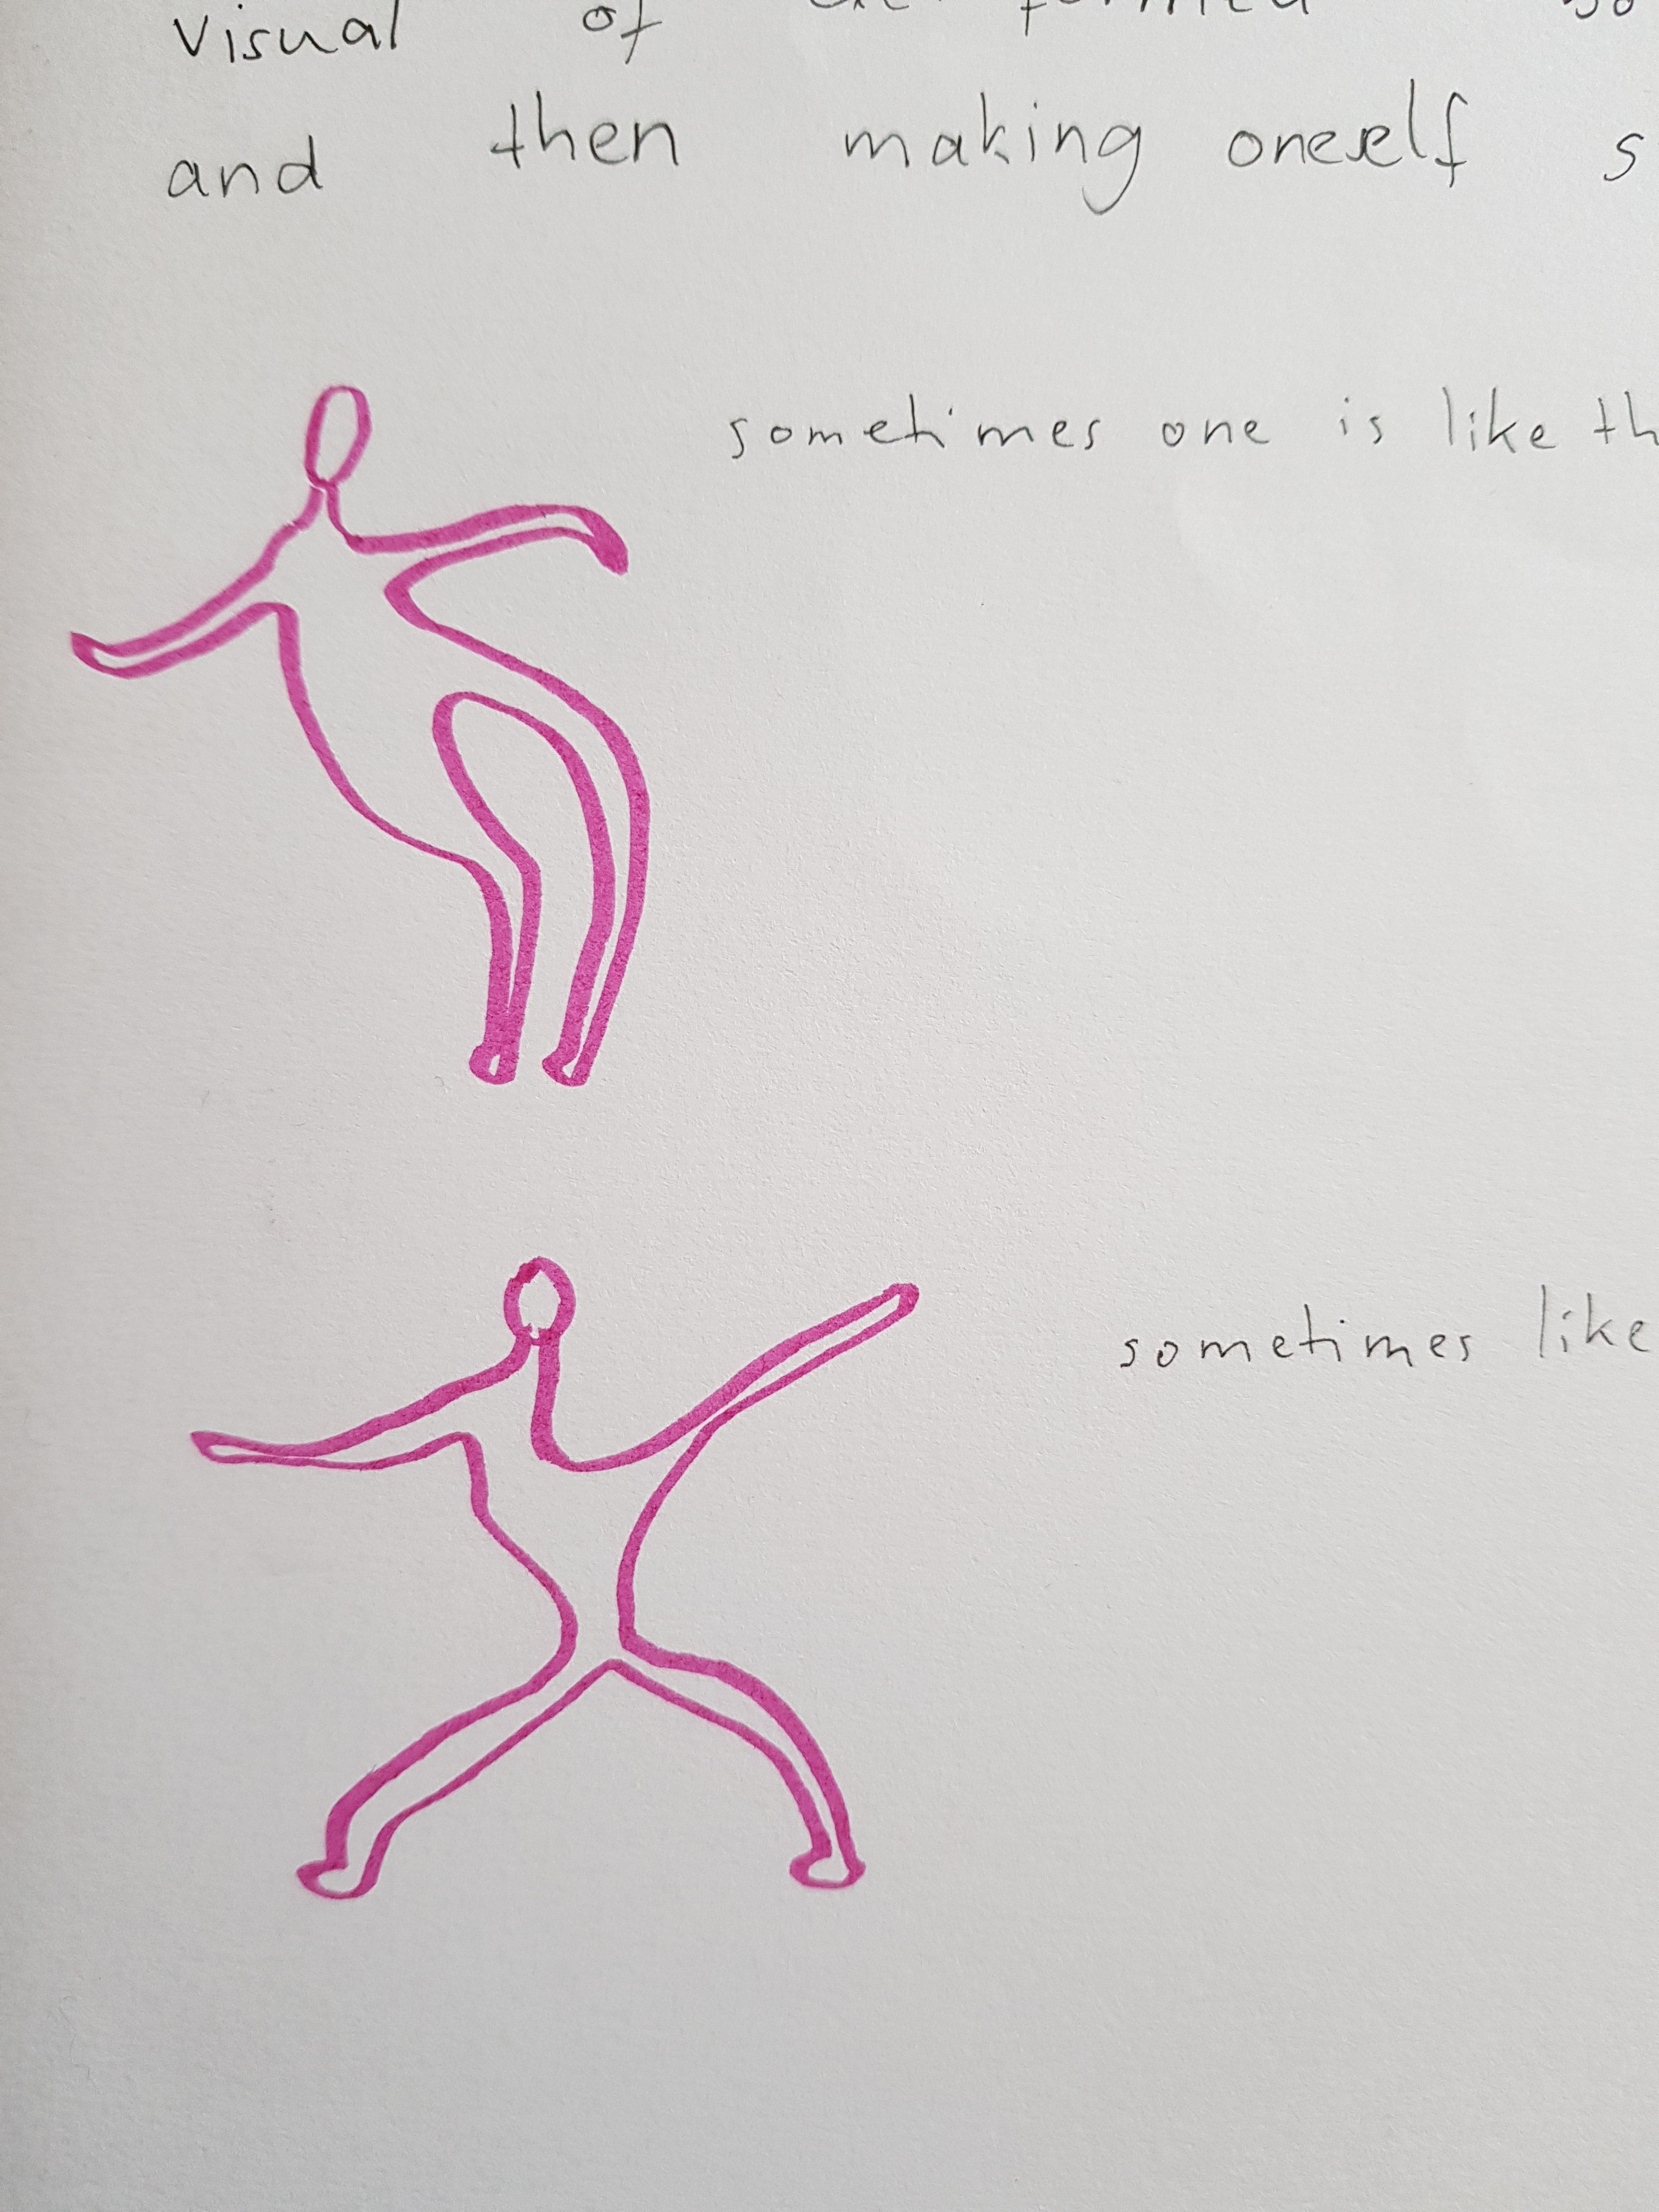 visual of formed
and then making oneself s
sometimes one is like th
sometimes like